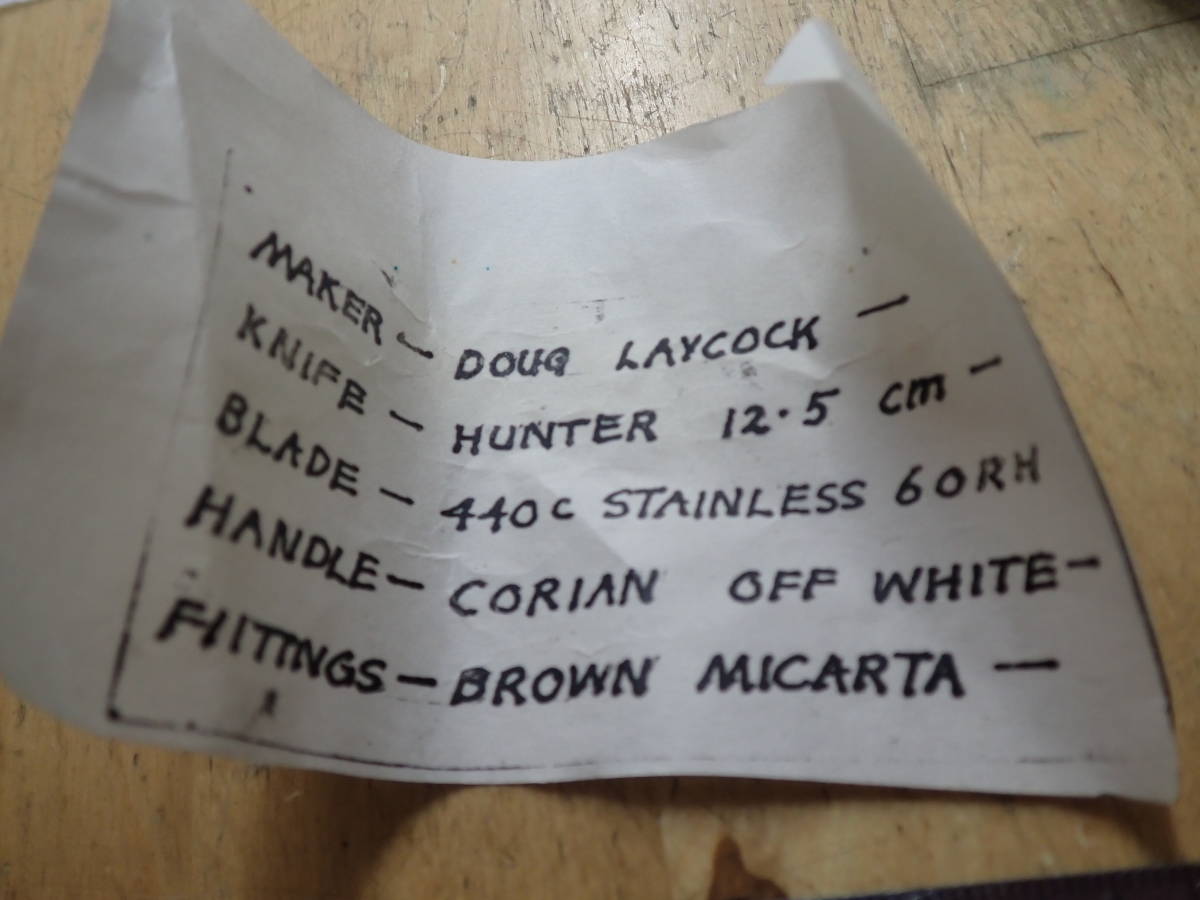 MAKER - DOUG LAYCOCK -
KNIFE - HUNTER 12.5 cm -
BLADE - 440c STAINLESS 60RH
HANDLE - CORIAN OFF WHITE -
FIITTINGS - BROWN MICARTA -